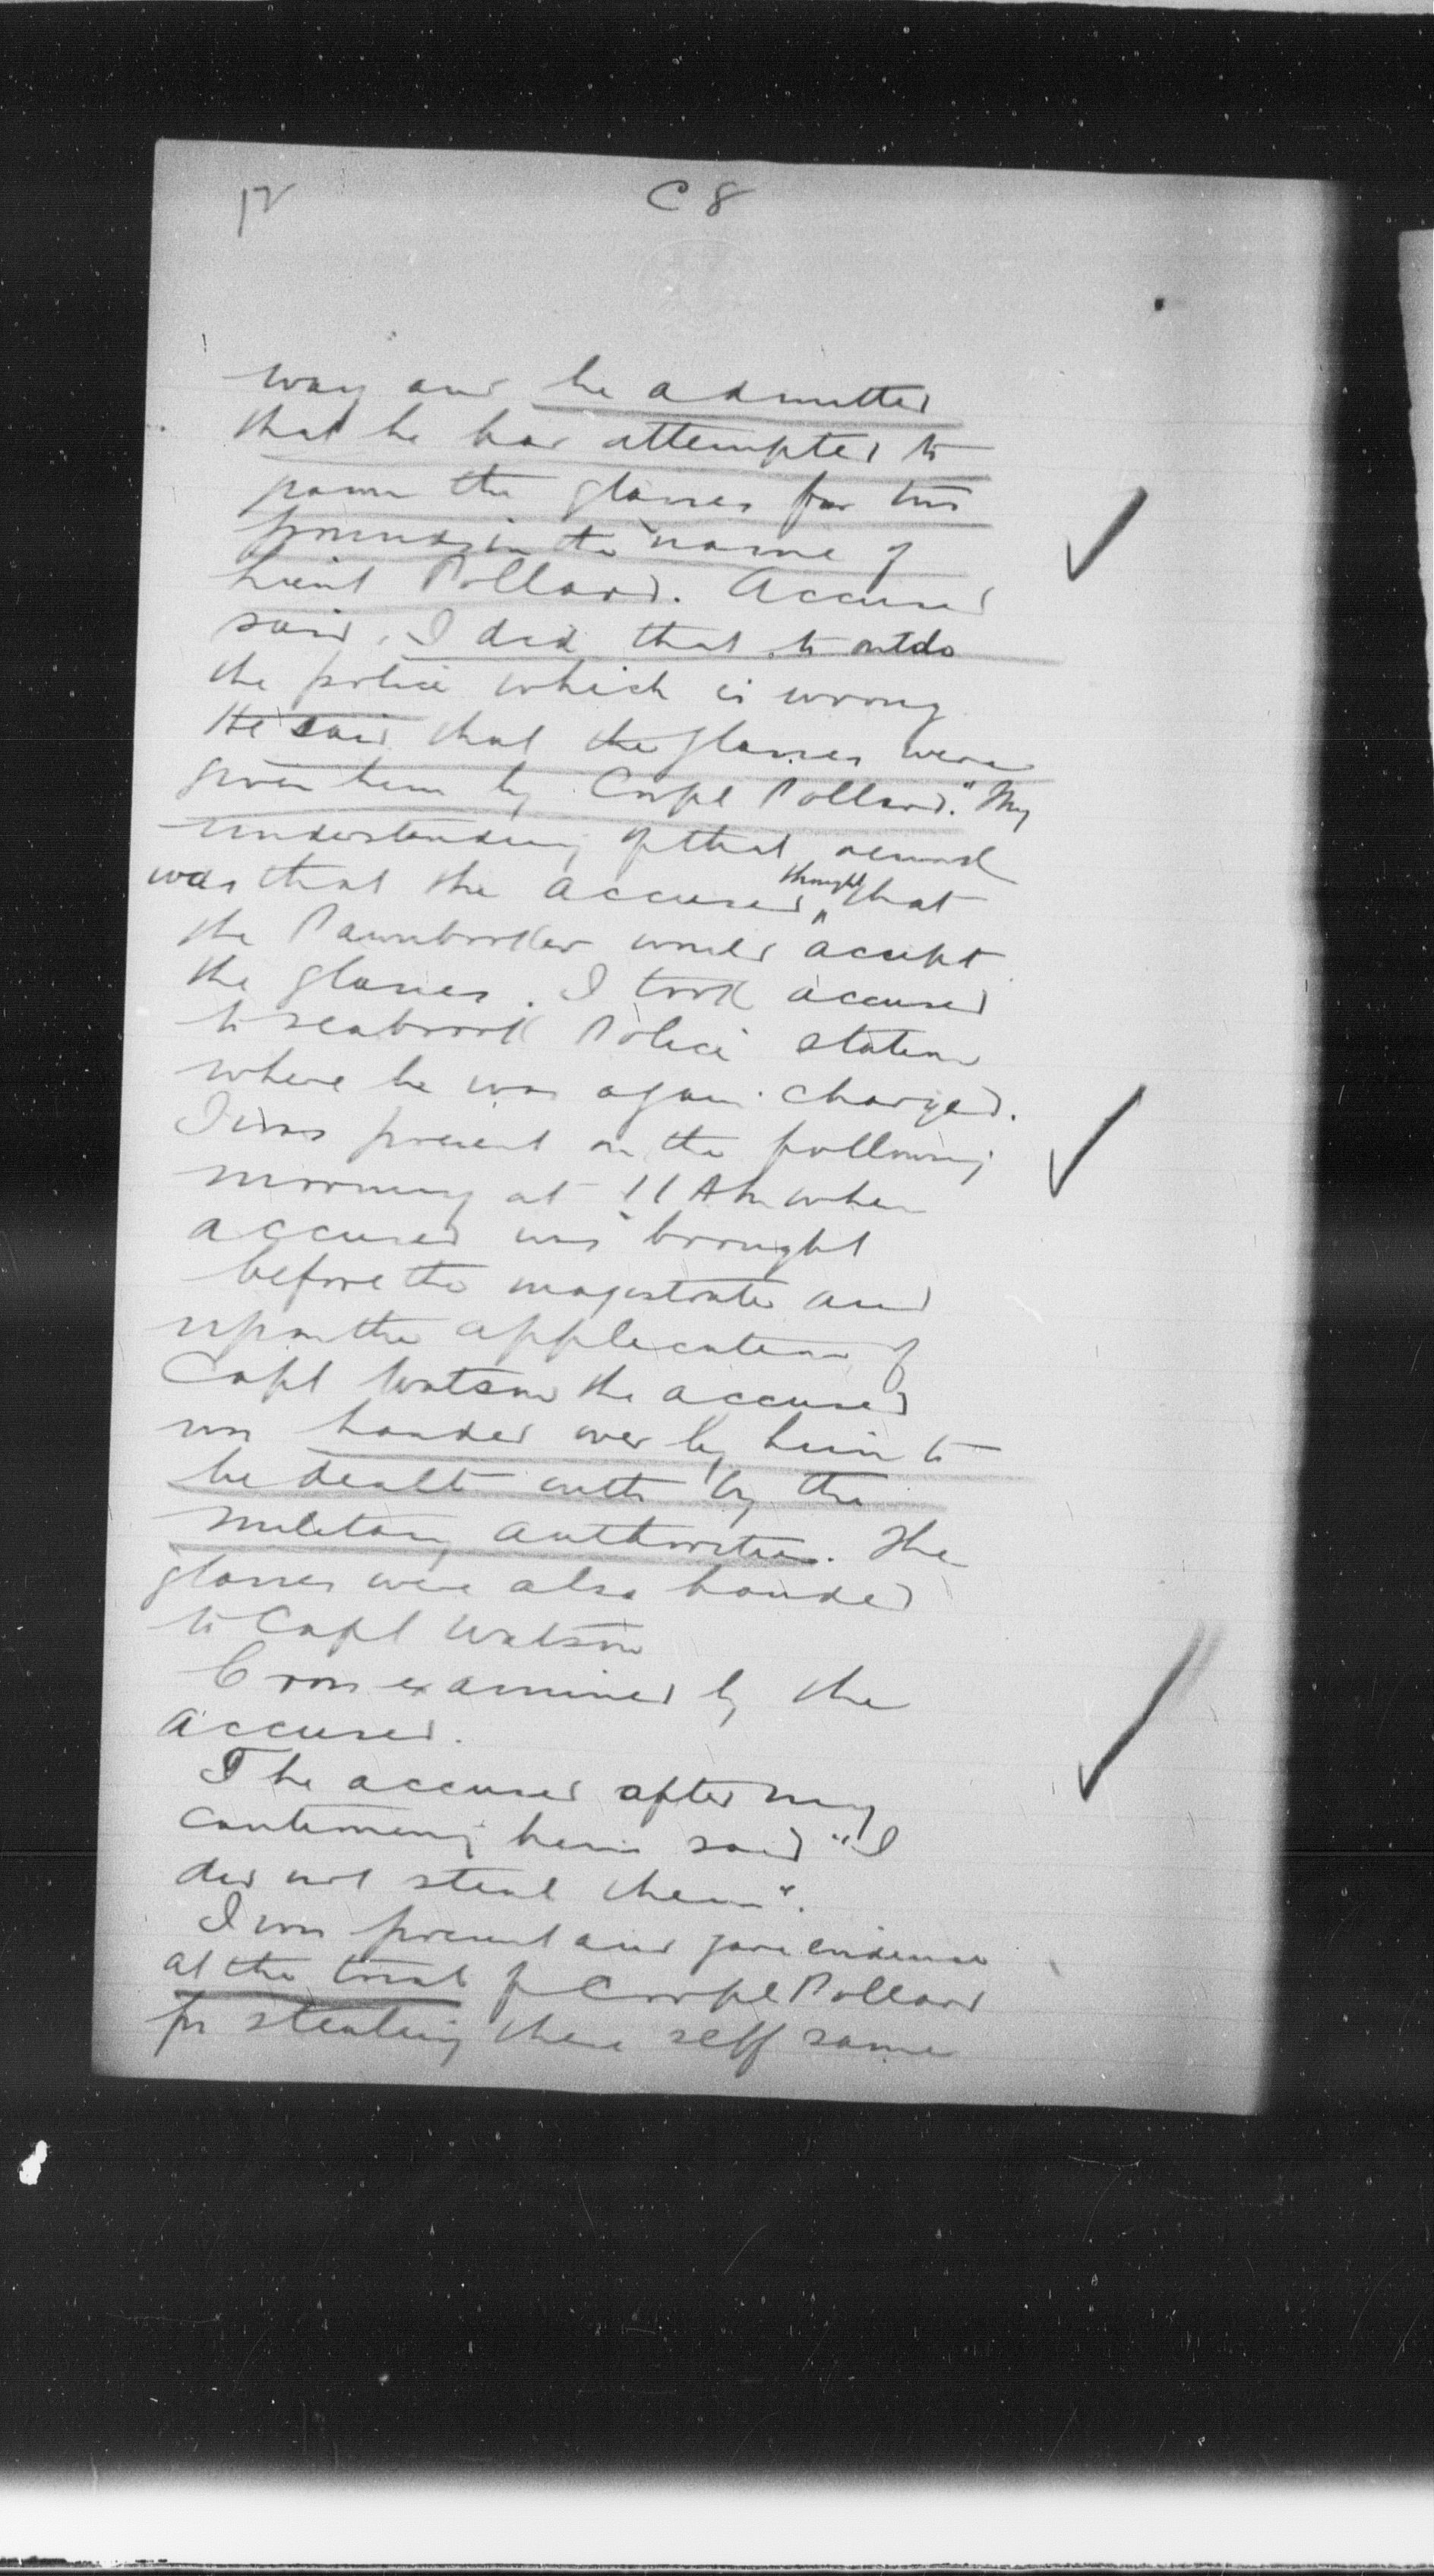 12
C 8
way and he admitted
that he had attempted to
pawn the glasses for two
pounds in the name of
Lieut Pollard. Accused
said, I did that to outdo
the police which is wrong
He said that the glasses were
given him by Corpl Pollard." My
understanding of that remark
was that the accused thought that
the Pawnbroker would accept
the glasses. I took accused
to Seabrook Police station
where he was again charged.
I was present on the following
morning at 11 AM when
accused was brought
before the magistrate and
upon the application of
Capt Watson the accused
was handed over by him to
be dealt with by the
military authorities. The
glasses were also handed
to Capt Watson
Cross examined by the
accused.
The accused after my
cautioning him said "I
did not steal them".
I was present and gave evidence
at the trial of Corpl Pollard
for stealing these self same